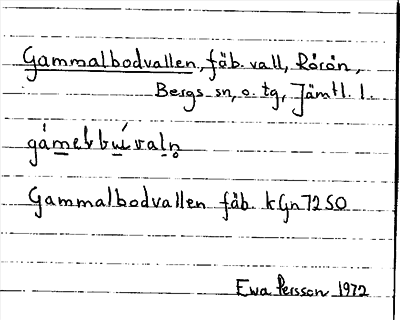 Gammalbodvallen, fäb. vall, Rörön,
Bergs sn, o. tg, Jämtl. l.
gámelbu̱´valn̥
Gammalbodvallen fäb. kGn 72 50
Ewa Persson 1972